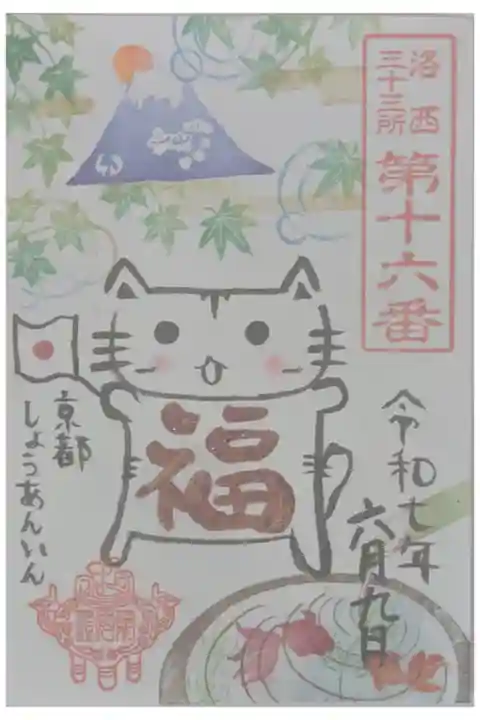 洛西
三十三所
第十六番
福
令和七年
六月九日
京都
しょうあんいん